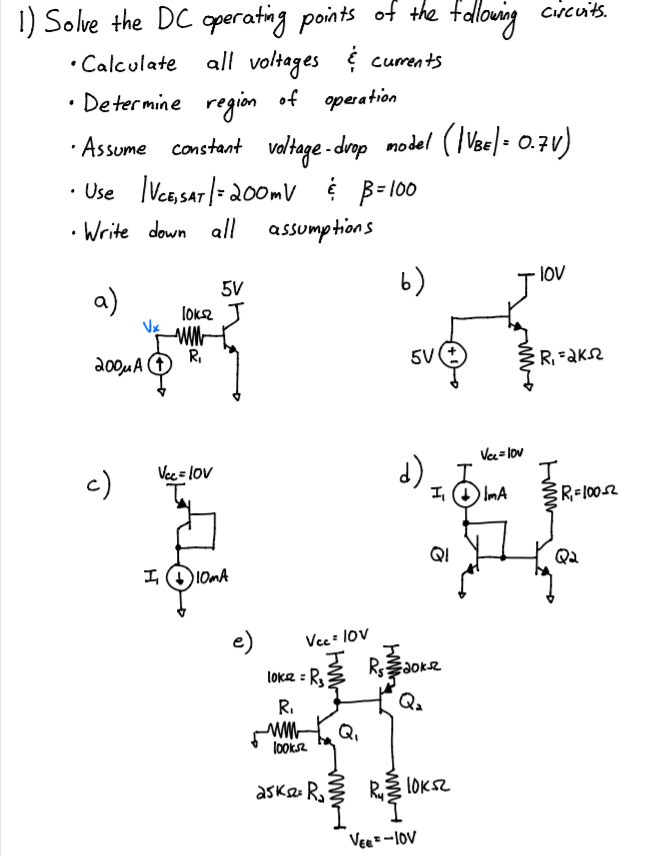 1) Solve the DC operating points of the following circuits.
• Calculate all voltages & currents
• Determine region of operation
• Assume constant voltage-drop model (|VBE|= 0.7V)
• Use |VCE,SAT|= 200mV & β=100
• Write down all assumptions
a)
5V
10kΩ
Vx
R₁
200μA
b)
10V
5V
R₁=2kΩ
c)
Vcc=10V
I₁
10mA
d)
Vcc=10V
I₁
1mA
R₁=100Ω
Q1
Q2
e)
Vcc=10V
10kΩ = R₃
R₅
20kΩ
R₁
Q₂
100kΩ
Q₁
25kΩ=R₂
R₄
10kΩ
VEE=-10V